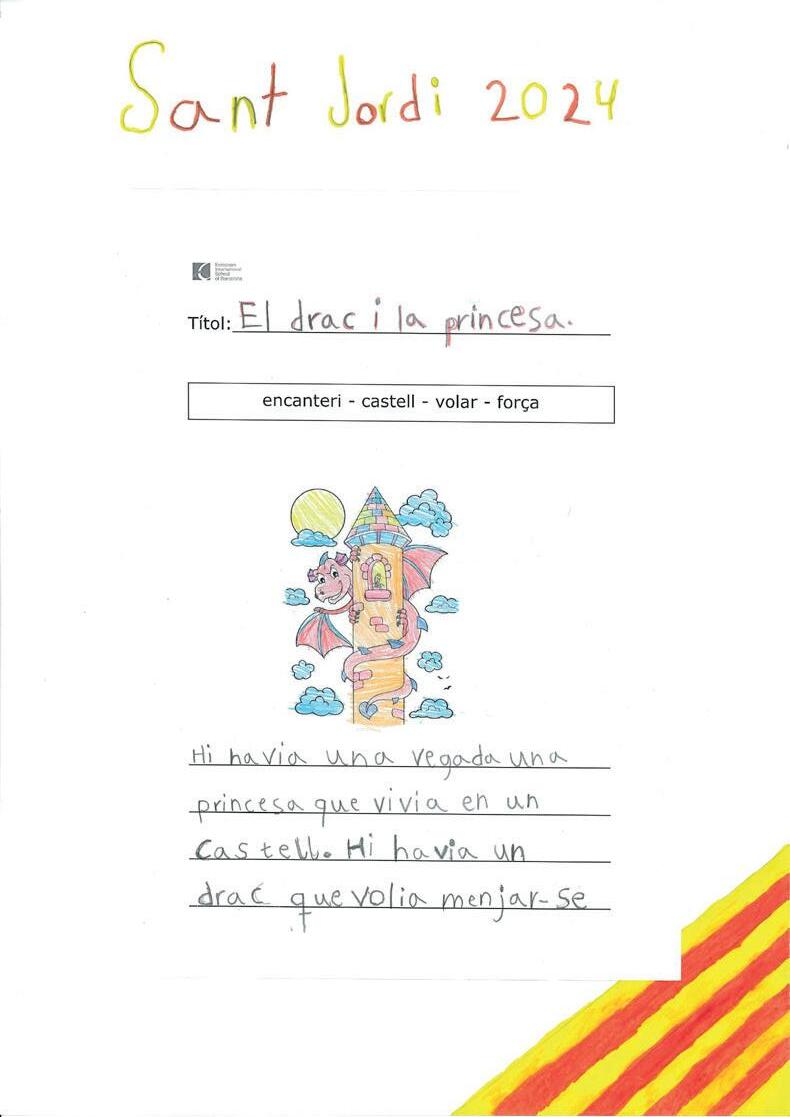 Sant Jordi 2024
European
International
School
of Barcelona
Títol: El drac i la princesa.
encanteri - castell - volar - força
Hi havia una vegada una
princesa que vivia en un
castell. Hi havia un
drac que volia menjar-se